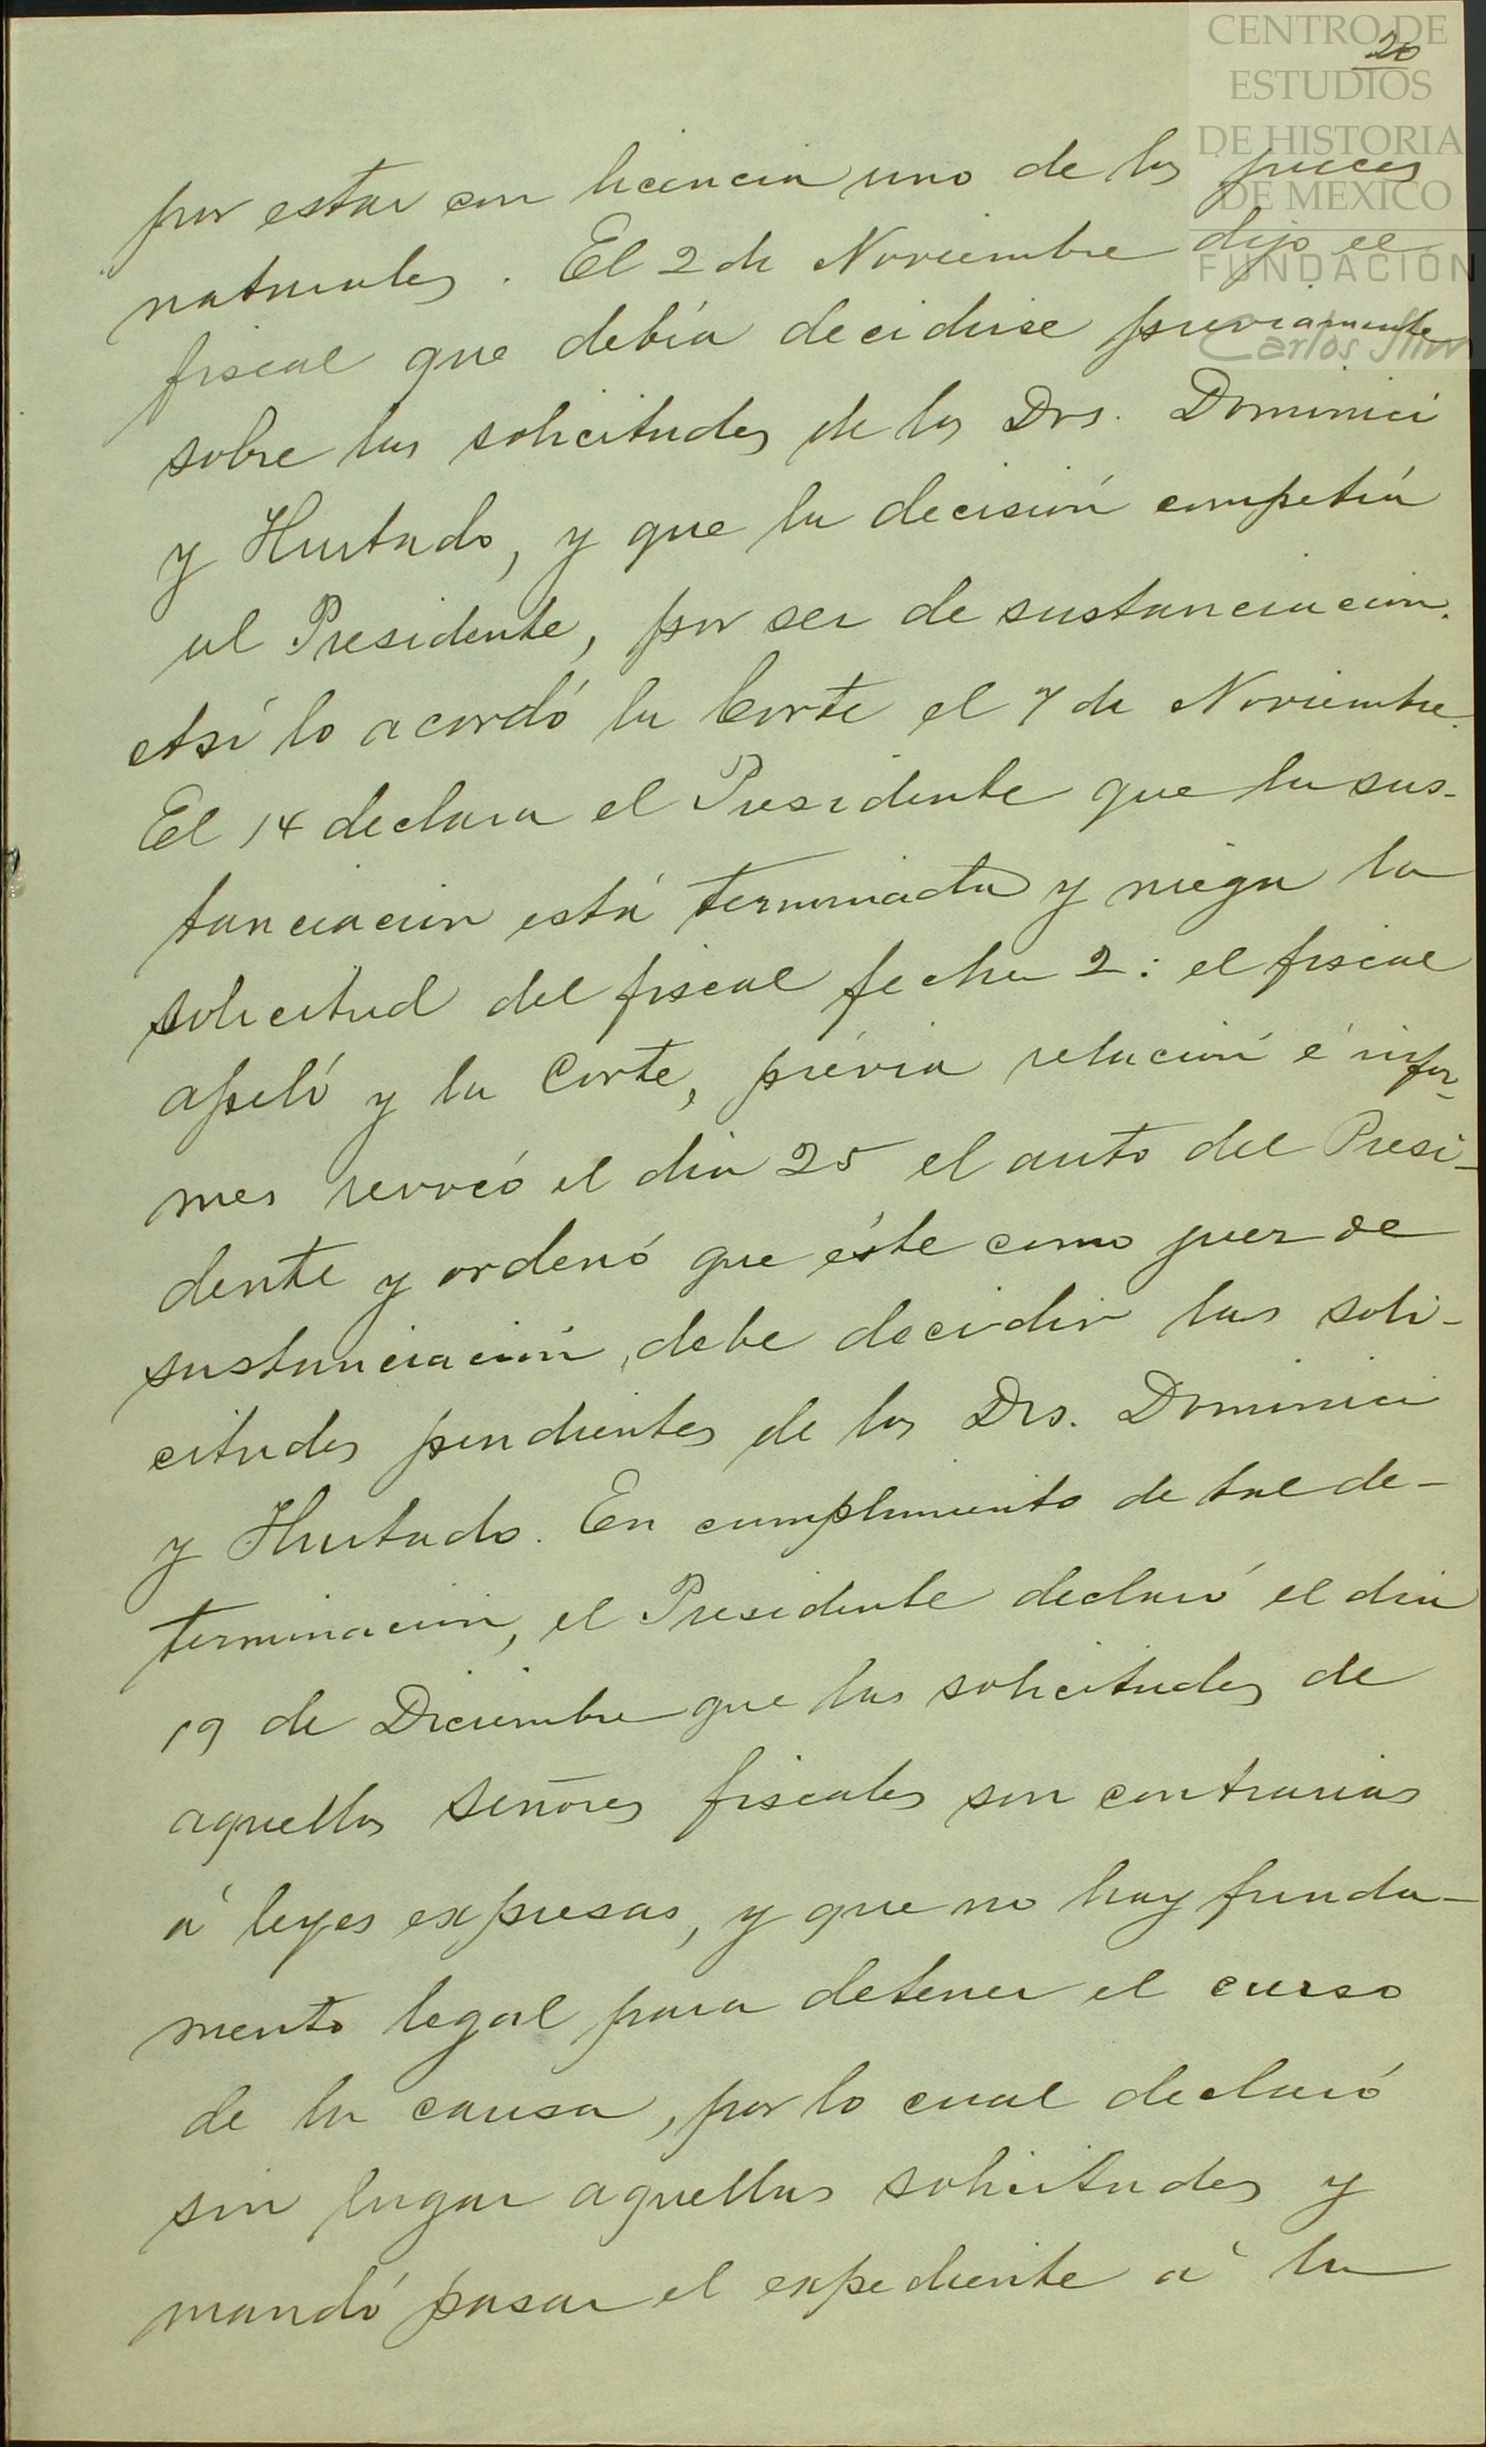 CENTRO DE
20
ESTUDIOS
DE HISTORIA
DE MEXICO
FUNDACIÓN
Carlos Slim
por estar con licencia uno de los jueces
naturales. El 2 de Noviembre dijo el
fiscal que debía decidirse previamente
sobre las solicitudes de los Drs. Dominici
y Hurtado, y que la decisión competía
al Presidente, por ser de sustanciacion.
Así lo acordó la Corte el 7 de Noviembre.
El 14 declara el Presidente que la sus-
tanciacion está terminada y niega la
solicitud del fiscal fecha 2: el fiscal
apeló y la Corte, prévia relación é infor-
mes revocó el dia 25 el auto del Presi-
dente y ordenó que éste como juez de
sustanciación, debe decidir las soli-
citudes pendientes de los Drs. Dominici
y Hurtado. En cumplimiento de tal de-
terminacion, el Presidente declaró el dia
19 de Diciembre que las solicitudes de
aquellos señores fiscales son contrarias
á leyes expresas, y que no hay funda-
mento legal para detener el curso
de la causa, por lo cual declaró
sin lugar aquellas solicitudes y
mandó pasar el expediente á la